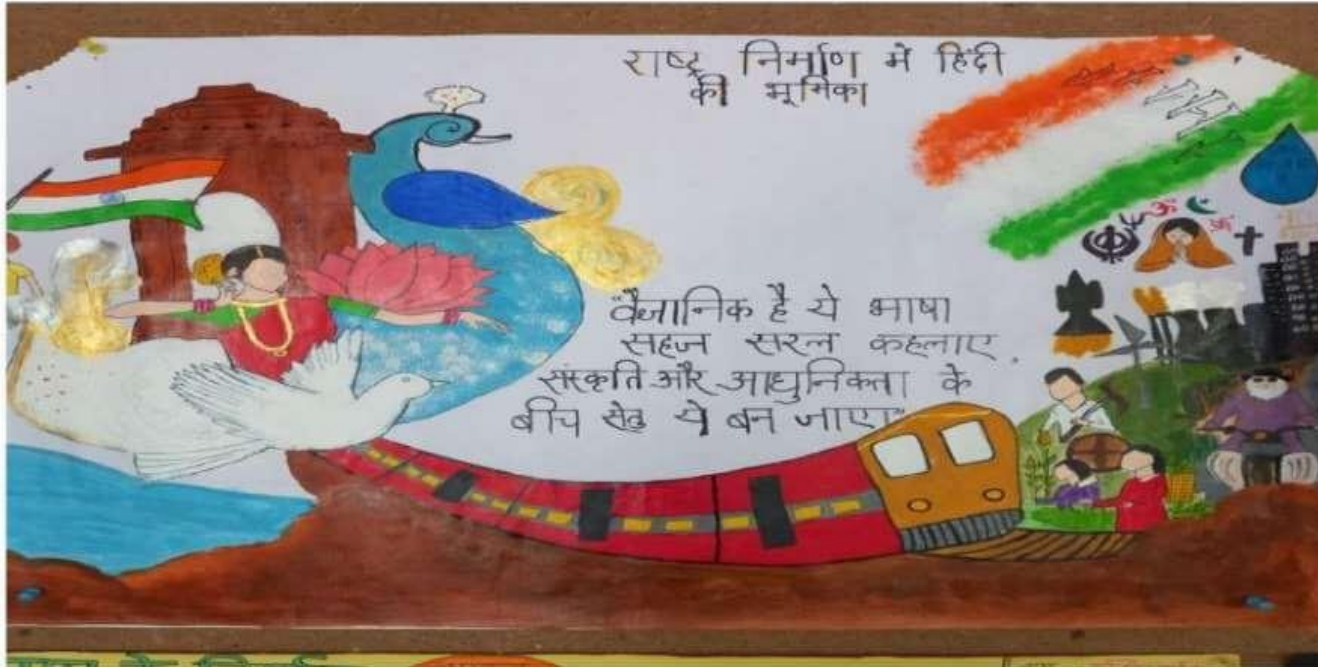 राष्ट्र निर्माण में हिंदी
की भूमिका
वैज्ञानिक है ये भाषा
सहज सरल कहलाए,
संस्कृति और आधुनिकता के
बीच सेतु ये बन जाए"